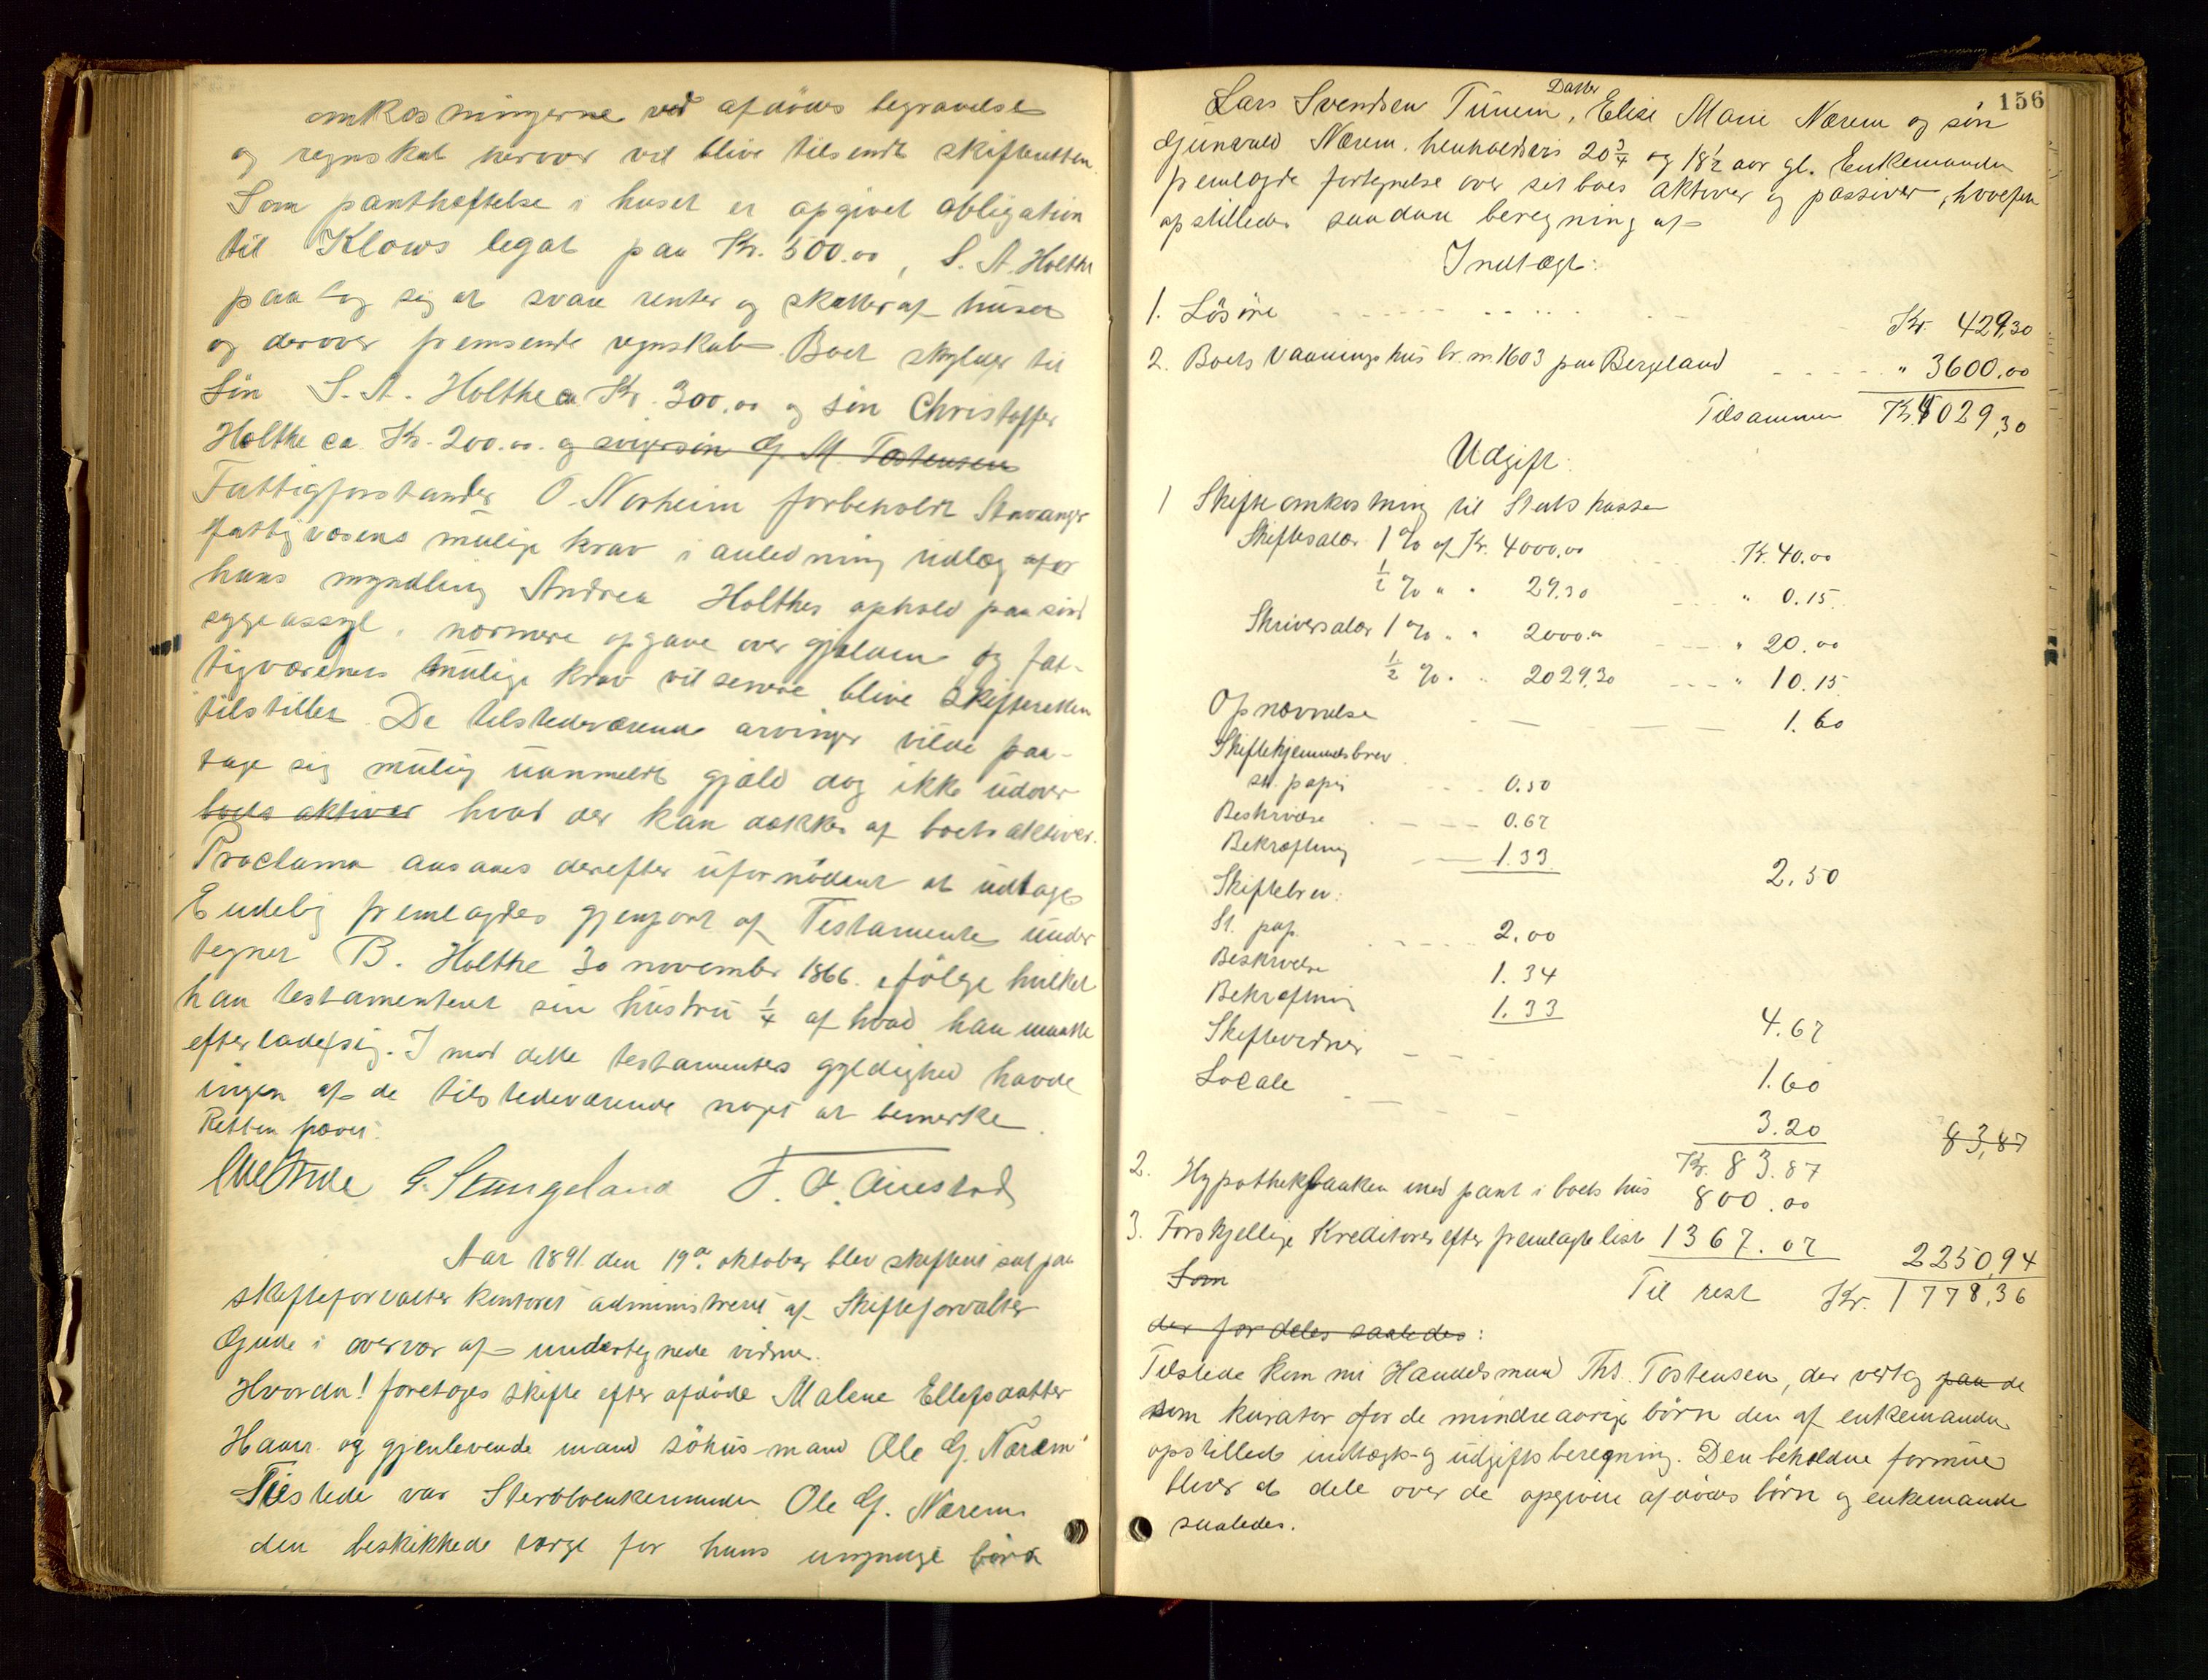 omkostningerne ved afdødes begravelse
og regnskab herover vil blive tilsendt skifteretten.
Som panthæftelse i huset er opgivet obligation
til Klows legat paa Kr. 500.00, S. A. Holthe
paatog sig at svare renter og skatter af huset
og derover fremsende regnskab. Boet skylder til
Søn S. A. Holthe ca Kr. 300.00 og søn Christoffer
Holthe ca. Kr. 200.00. og svigersøn G. M. Tostensen
Fattigforstander O. Norheim forbeholdt Stavanger
fattigvæsens mulige krav i anledning udlæg for
hans myndling Andrea Holthes ophold paa sind
sygeassyl, nærmere opgave over gjælden og fat-
tigvæsenets mulige krav vil senere blive skifteretten
tilstillet. De tilstedeværende arvinger vilde paa-
tage sig mulig uanmeldt gjæld dog ikke udover
boets aktiver hvad der kan dækkes af boets aktiver.
Proclama ansaaes derefter ufornødent at udtages
Endelig fremlagdes gjenpart af Testamente under
tegnet B. Holthe 30 november 1866. ifølge hvilket
han testamenteret sin hustru 1/4 af hvad han maatte
efterlade sig. I mod dette testamentes gyldighed havde
ingen af de tilstedeværende noget at bemerke.
Retten hævet.
G. Stangeland F. O. Auestad
Aar 1891 den 19de oktober blev skifteret sat paa
skifteforvalter kontoret administreret af Skifteforvalter
Gude i overvær af undertegnede vidner.
Hvorda! foretoges skifte efter afdøde Malene Ellefsdatter
Haar og gjenlevende mand søhus-mand Ole G. Nærem
Tilstede var Sterbboenkemanden Ole G. Nærem
den beskikkede værge for hans umyndige børn
156
Datter
Lars Svendsen Tunem, Elise Marie Nærem og søn
Gunvald Nærem. henholdsvis 20 3/4 og 18 1/2 aar gl. Enkemanden
fremlagde fortegnelse over sit boes aktiver og passiver, hvorefter
opstilledes saadan beregning af
Indtægt:
1. Løsøre Kr. 429,30
2. Boets Vaaningshus br. nr. 1603 paa Bergeland " 3600.00
Tilsammen Kr. 4029,30
Udgift:
1 Skifteomkostning til Statskassen
Skiftesalær 1 % af Kr. 4000,00 Kr. 40.00
1/2 % " " 29.30 " 0.15.
Skriversalær 1 % " " 2000.00 " 20.00
1/2 % " " 2029,30 " 10.15.
Opnævnelse 1.60
Skiftehjemmelsbrev
st. papir 0.50
Beskrivelse 0.67
Bekræftning 1.33 2.50
Skiftebrev:
St. pap. 2.00
Beskrivelse 1.34
Bekræftning 1.33 4.67
Skiftevidner 1.60
Locale 3.20 83,87
Kr. 83.87
2. Hypothekbanken med pant i boets hus 800.00
3. Forskjellige Kreditorer efter fremlagte liste 1367.07 2250,94
Som Til rest Kr. 1778,36
der fordeles saaledes:
Tilstede kom nu Handelsmand Ths. Tostensen, der vertog paa de
som kurator for de mindreaarige børn den af enkemanden
opstillede indtægts- og udgifts beregning. Den beholdne formue
bliver at dele over de opgivne afdødes børn og enkemanden
saaledes.